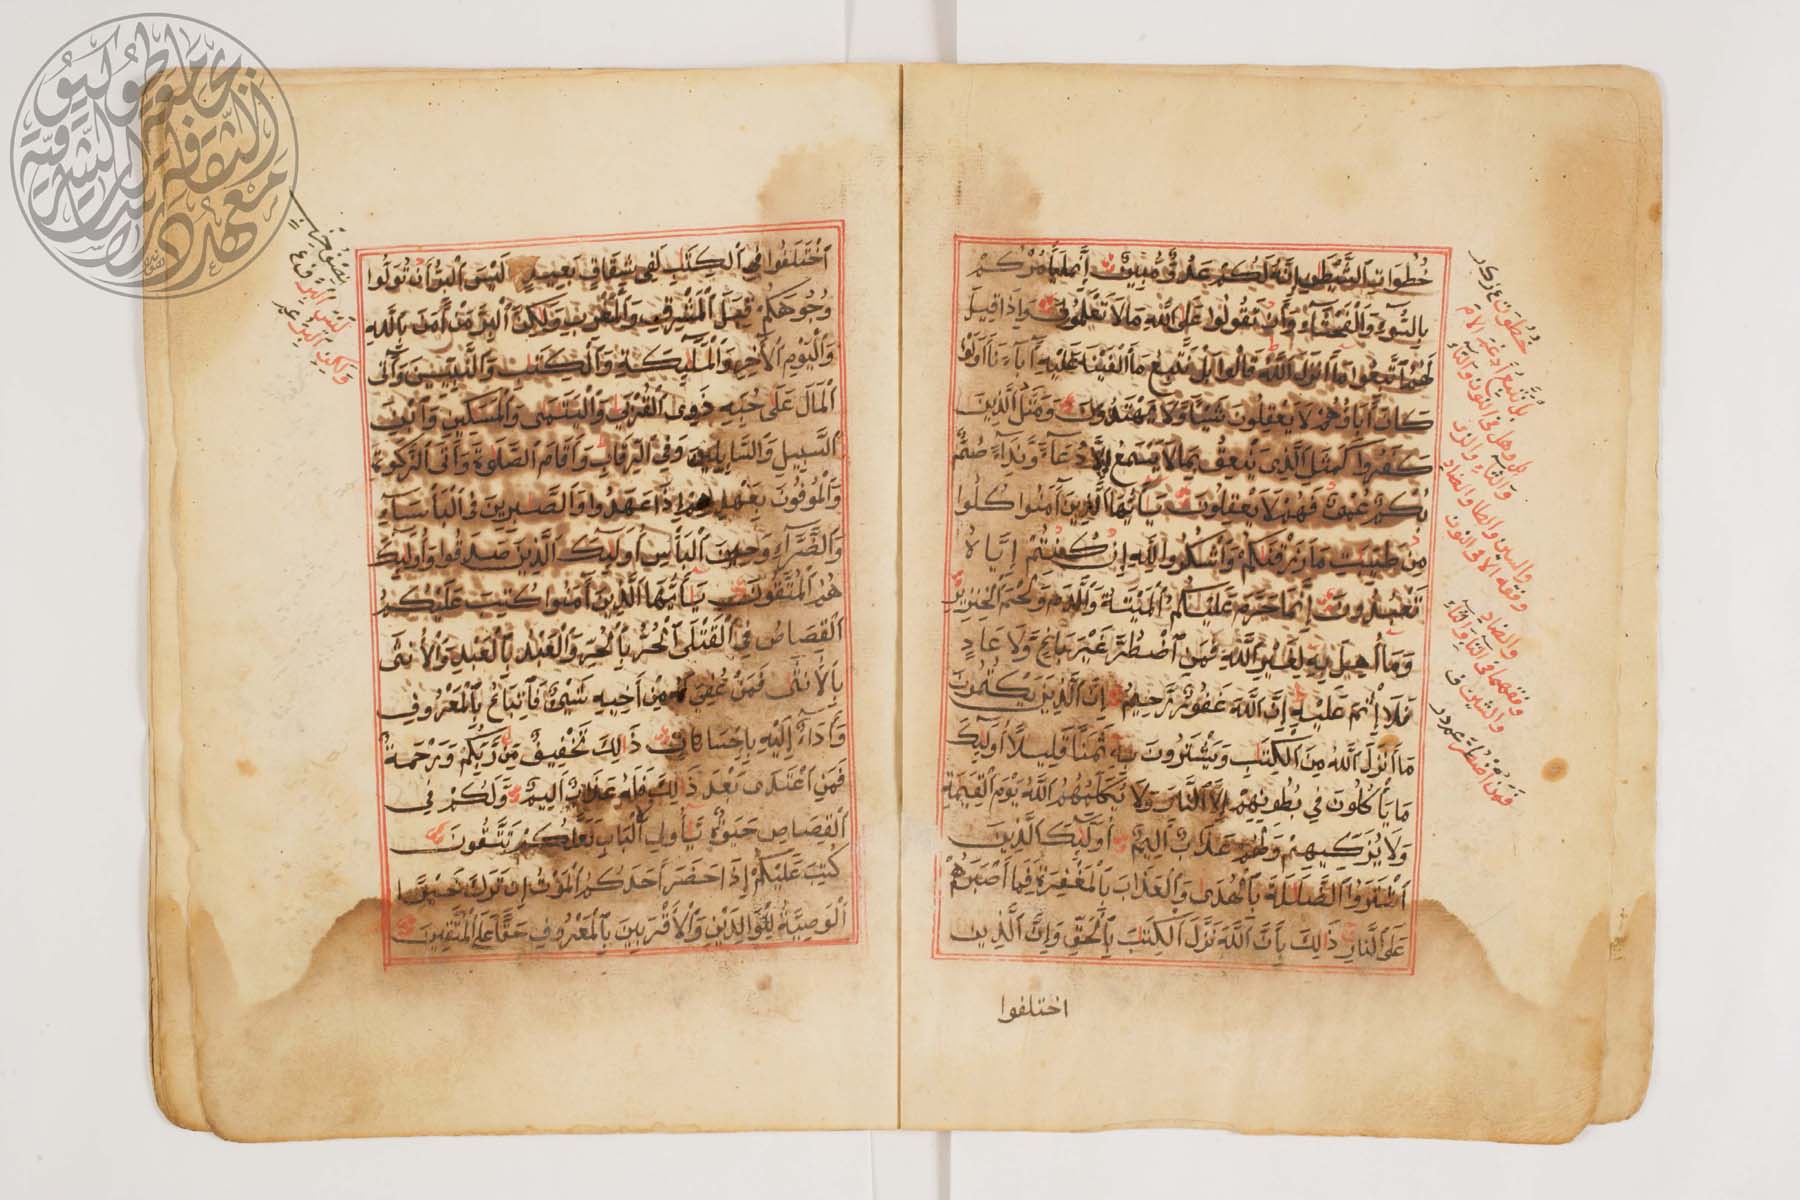 خُطُوَاتِ ٱلشَّيْطَٰنِ إِنَّهُ لَكُمْ عَدُوٌّ مُّبِينٌ إِنَّمَا يَأْمُرُكُمْ
بِالسُّوءِ وَالْفَحْشَاءِ وَأَن تَقُولُوا عَلَى اللَّهِ مَا لَا تَعْلَمُونَ وَإِذَا قِيلَ
لَهُمُ اتَّبِعُوا مَا أَنزَلَ اللَّهُ قَالُوا بَلْ نَتَّبِعُ مَا أَلْفَيْنَا عَلَيْهِ آبَاءَنَا أَوَلَوْ
كَانَ آبَاؤُهُمْ لَا يَعْقِلُونَ شَيْئًا وَلَا يَهْتَدُونَ وَمَثَلُ الَّذِينَ
كَفَرُوا كَمَثَلِ الَّذِي يَنْعِقُ بِمَا لَا يَسْمَعُ إِلَّا دُعَاءً وَنِدَاءً صُمٌّ
بُكْمٌ عُمْيٌ فَهُمْ لَا يَعْقِلُونَ يَٰأَيُّهَا الَّذِينَ آمَنُوا كُلُوا
مِن طَيِّبَٰتِ مَا رَزَقْنَٰكُمْ وَاشْكُرُوا لِلَّهِ إِن كُنتُمْ إِيَّاهُ
تَعْبُدُونَ إِنَّمَا حَرَّمَ عَلَيْكُمُ الْمَيْتَةَ وَالدَّمَ وَلَحْمَ الْخِنزِيرِ
وَمَا أُهِلَّ بِهِ لِغَيْرِ اللَّهِ فَمَنِ اضْطُرَّ غَيْرَ بَاغٍ وَلَا عَادٍ
فَلَا إِثْمَ عَلَيْهِ إِنَّ اللَّهَ غَفُورٌ رَّحِيمٌ إِنَّ الَّذِينَ يَكْتُمُونَ
مَا أَنزَلَ اللَّهُ مِنَ الْكِتَٰبِ وَيَشْتَرُونَ بِهِ ثَمَنًا قَلِيلًا أُولَٰئِكَ
مَا يَأْكُلُونَ فِي بُطُونِهِمْ إِلَّا النَّارَ وَلَا يُكَلِّمُهُمُ اللَّهُ يَوْمَ الْقِيَٰمَةِ
وَلَا يُزَكِّيهِمْ وَلَهُمْ عَذَابٌ أَلِيمٌ أُولَٰئِكَ الَّذِينَ
اشْتَرَوُا الضَّلَٰلَةَ بِالْهُدَىٰ وَالْعَذَابَ بِالْمَغْفِرَةِ فَمَا أَصْبَرَهُمْ
عَلَى النَّارِ ذَٰلِكَ بِأَنَّ اللَّهَ نَزَّلَ الْكِتَٰبَ بِالْحَقِّ وَإِنَّ الَّذِينَ
اختلفوا
خُطُوَٰتِ
بَلْ نَتَّبِعُ ادغم اللام
بل وهل في النون والتاء
والثاء والزاي
والسين والطا والضاد
وفقه الا في النون
والضاد
وفقهما في التاء والثاء
والشين ف
فَمَنِ اضْطُرَّ
اخْتَلَفُوا فِي الْكِتَٰبِ لَفِي شِقَاقٍ بَعِيدٍ لَيْسَ الْبِرُّ أَن تُوَلُّوا
وُجُوهَكُمْ قِبَلَ الْمَشْرِقِ وَالْمَغْرِبِ وَلَٰكِنَّ الْبِرَّ مَنْ آمَنَ بِاللَّهِ
وَالْيَوْمِ الْآخِرِ وَالْمَلَٰئِكَةِ وَالْكِتَٰبِ وَالنَّبِيِّينَ وَآتَى
الْمَالَ عَلَىٰ حُبِّهِ ذَوِي الْقُرْبَىٰ وَالْيَتَٰمَىٰ وَالْمَسَٰكِينَ وَابْنَ
السَّبِيلِ وَالسَّائِلِينَ وَفِي الرِّقَابِ وَأَقَامَ الصَّلَوٰةَ وَآتَى الزَّكَوٰةَ
وَالْمُوفُونَ بِعَهْدِهِمْ إِذَا عَٰهَدُوا وَالصَّٰبِرِينَ فِي الْبَأْسَاءِ
وَالضَّرَّاءِ وَحِينَ الْبَأْسِ أُولَٰئِكَ الَّذِينَ صَدَقُوا وَأُولَٰئِكَ
هُمُ الْمُتَّقُونَ يَٰأَيُّهَا الَّذِينَ آمَنُوا كُتِبَ عَلَيْكُمُ
الْقِصَاصُ فِي الْقَتْلَى الْحُرُّ بِالْحُرِّ وَالْعَبْدُ بِالْعَبْدِ وَالْأُنثَىٰ
بِالْأُنثَىٰ فَمَنْ عُفِيَ لَهُ مِنْ أَخِيهِ شَيْءٌ فَاتِّبَاعٌ بِالْمَعْرُوفِ
وَأَدَاءٌ إِلَيْهِ بِإِحْسَانٍ ذَٰلِكَ تَخْفِيفٌ مِّن رَّبِّكُمْ وَرَحْمَةٌ
فَمَنِ اعْتَدَىٰ بَعْدَ ذَٰلِكَ فَلَهُ عَذَابٌ أَلِيمٌ وَلَكُمْ فِي
الْقِصَاصِ حَيَوٰةٌ يَٰأُولِي الْأَلْبَابِ لَعَلَّكُمْ تَتَّقُونَ
كُتِبَ عَلَيْكُمْ إِذَا حَضَرَ أَحَدَكُمُ الْمَوْتُ إِن تَرَكَ خَيْرًا
الْوَصِيَّةُ لِلْوَالِدَيْنِ وَالْأَقْرَبِينَ بِالْمَعْرُوفِ حَقًّا عَلَى الْمُتَّقِينَ
لَيْسَ الْبِرُّ
وَلَٰكِنِ الْبِرُّ